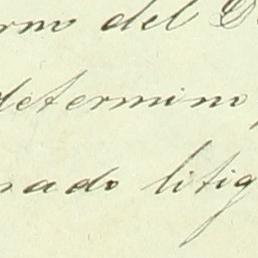 rno del D
determino
nado litig